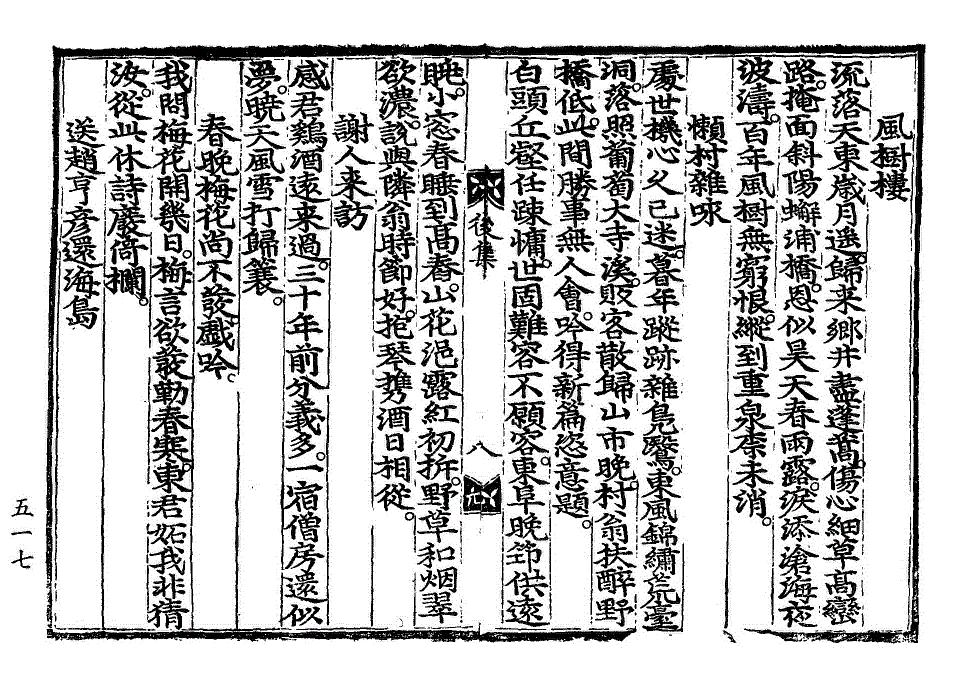 風樹樓
流落天東歲月遥。歸来鄉井盡蓬蒿。傷心細草高巒
路。掩面斜陽蠏浦橋。恩似昊天春雨露。淚添滄海夜
波濤。百年風樹無窮恨。縱到重泉柰未消。
懶村雜咏
處世機心久已迷。暮年蹤跡雜鳧鷖。東風錦繡荒臺
洞。落照葡萄大寺溪。販客散歸山市晚。村翁扶醉野
橋低。此間勝事無人會。吟得新篇恣意題。
白頭丘壑任踈慵。世固難容不願容。東阜晚筇供遠
眺。小窓春睡到高舂。山花浥露紅初拆。野草和烟翠
欲濃。說與隣翁時節好。抱琴携酒日相從。
謝人来訪
感君鷄酒遠来過。三十年前分義多。一宿僧房還似
夢。曉天風雪打歸簑。
春晚梅花尚不發戲吟。
我問梅花開幾日。梅言欲發勒春寒。東君妬我非猜
汝。從此休詩廢倚欄。
送趙亨彥還海島
後集
八
五一七